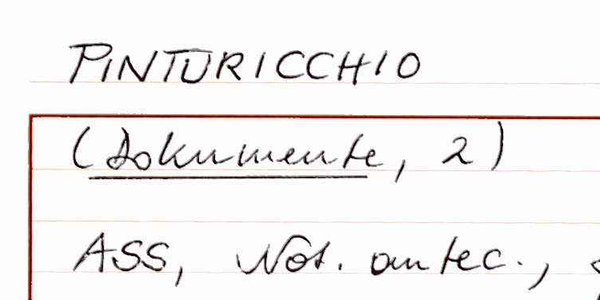 PINTURICCHIO
(Dokumente, 2)
ASS, Not. antec.,